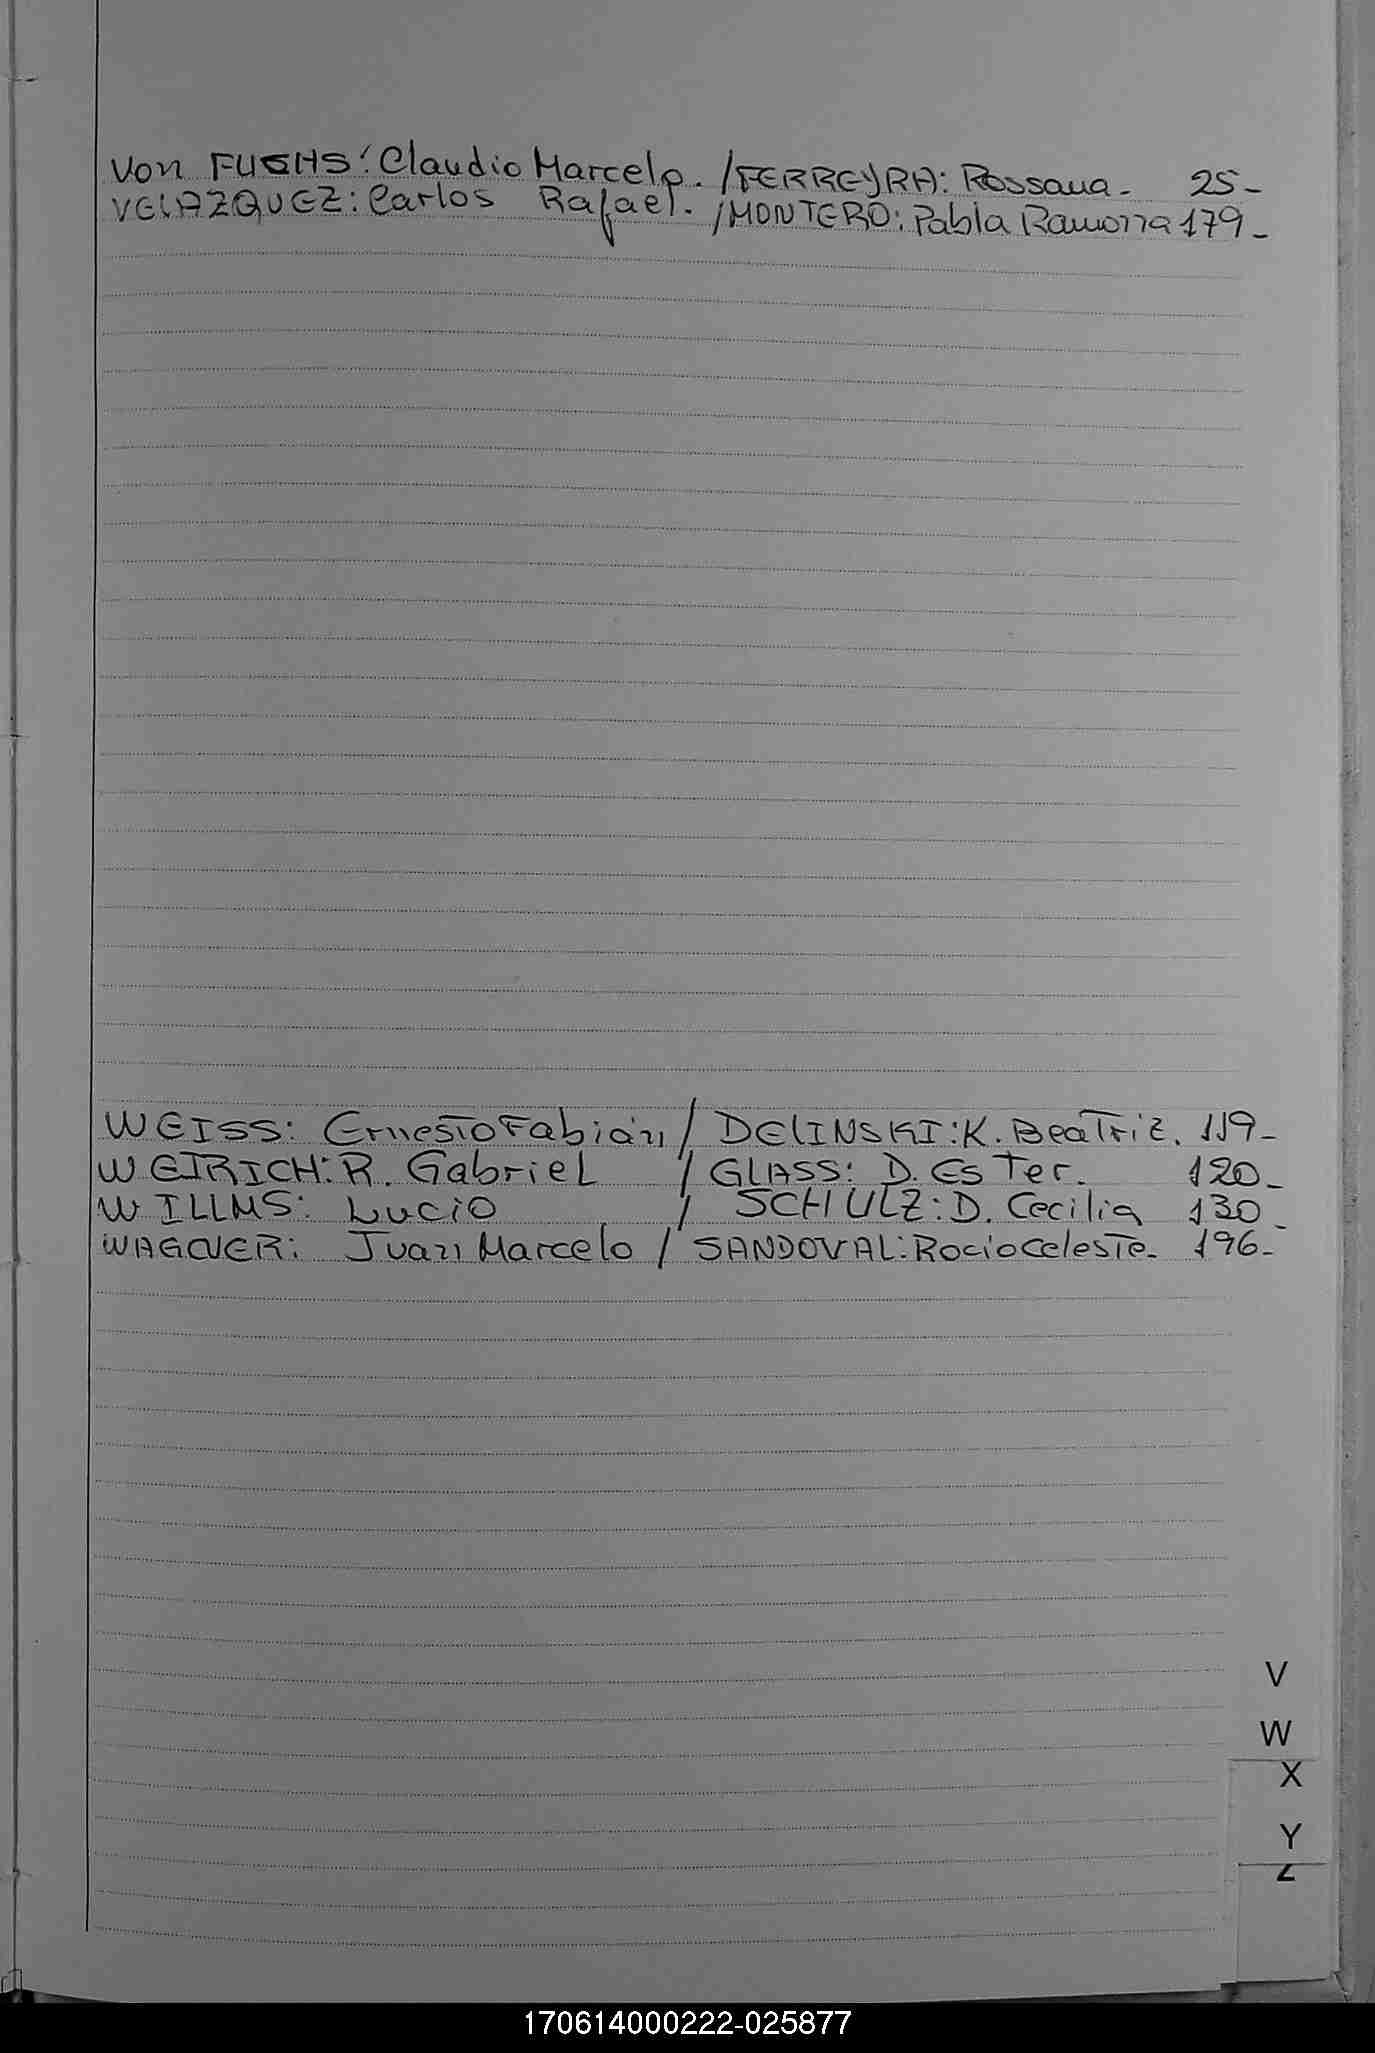 Von FUCHS: Claudio Marcelo. /FERREYRA: Rossana- 25-
VELAZQUEZ: Carlos Rafael. /MONTERO: Pabla Ramona 179-
WEISS: Ernesto Fabián / DELINSKI: K. Beatriz. 119-
WEIRICH: R. Gabriel / GLASS: D. Ester. 120-
WILLMS: Lucio / SCHULZ: D. Cecilia 130-
WAGNER: Juan Marcelo / SANDOVAL: Rocio Celeste- 196-
V
W
X
Y
Z
170614000222-025877